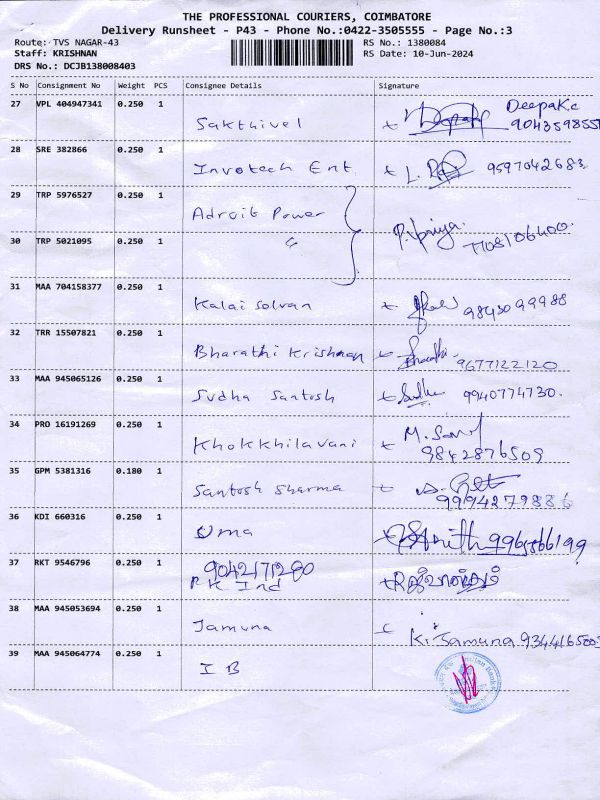 THE PROFESSIONAL COURIERS, COIMBATORE
Delivery Runsheet - P43 - Phone No.:0422-3505555 - Page No.:3
Route: TVS NAGAR-43 RS No.: 1380084
Staff: KRISHNAN RS Date: 10-Jun-2024
DRS No.: DCJB138008403
S No Consignment No Weight PCS Consignee Details Signature
27 VPL 404947341 0.250 1 Sakthivel Deepak.c
9043598557
28 SRE 382866 0.250 1 Invotech Ent. 9597042683
29 TRP 5976527 0.250 1 Adroit Power P. Vpriya
30 TRP 5021095 0.250 1 7708106400
31 MAA 704158377 0.250 1 Kalai Solvan 9843099988
32 TRR 15507821 0.250 1 Bharathi Krishnan 9677122120
33 MAA 945065126 0.250 1 Sudha Santosh Sudha 9940774730
34 PRO 16191269 0.250 1 Khokkhilavani M.
9842876509
35 GPM 5381316 0.180 1 Santosh Sharma
9994279886
36 KDI 660316 0.250 1 Uma
37 RKT 9546796 0.250 1 9042171200
R K Ind
38 MAA 945053694 0.250 1 Jamuna K. Jamuna 934416500
39 MAA 945064774 0.250 1 I B